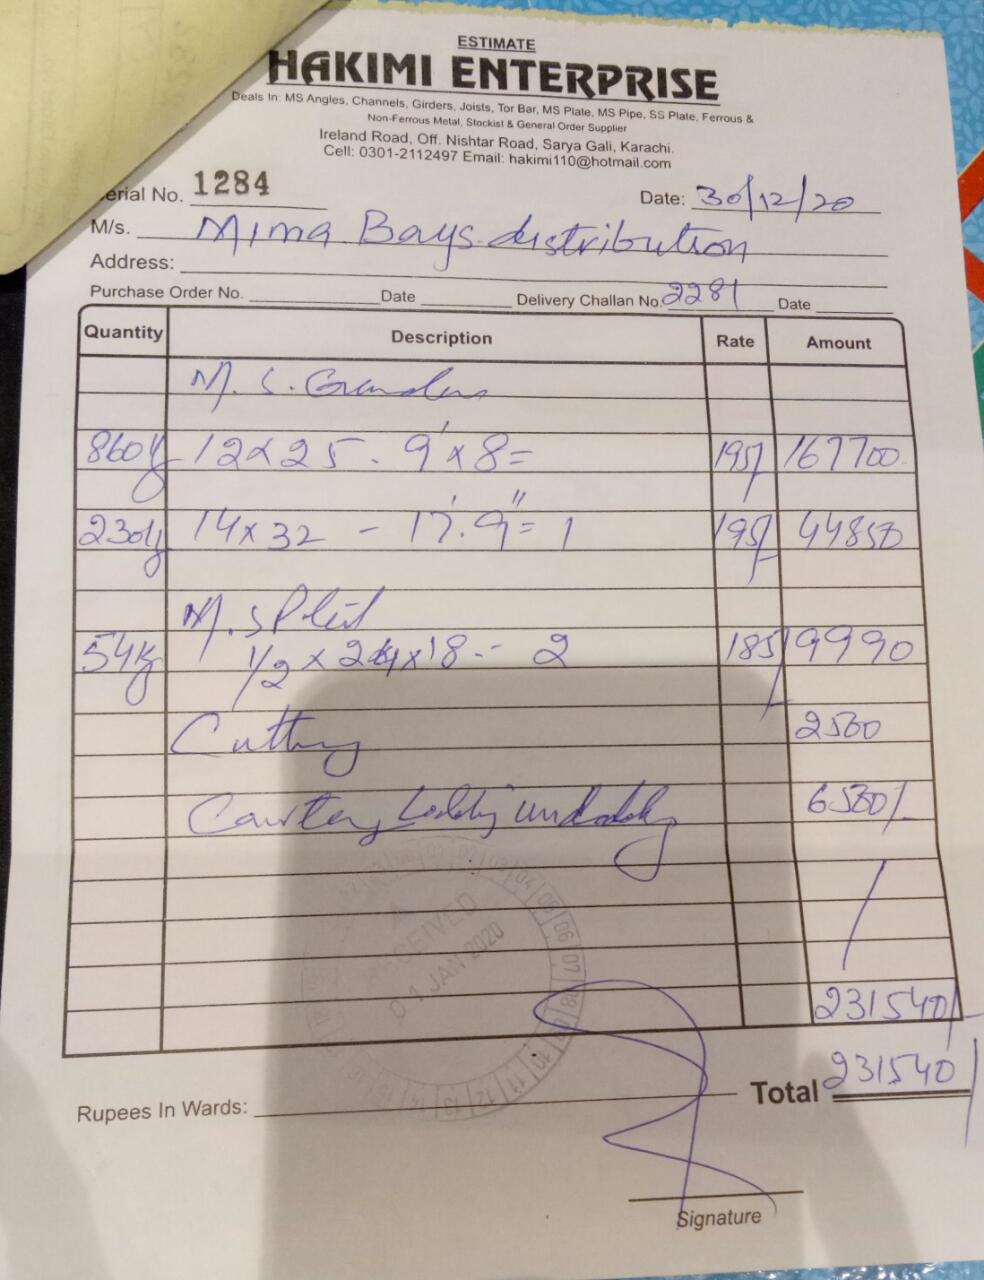 ESTIMATE
HAKIMI ENTERPRISE
Deals In: MS Angles, Channels, Girders, Joists, Tor Bar, MS Plate, MS Pipe, SS Plate, Ferrous &
Non-Ferrous Metal, Stockist & General Order Supplier
Ireland Road, Off. Nishtar Road, Sarya Gali, Karachi.
Cell: 0301-2112497 Email: hakimi110@hotmail.com
erial No. 1284 Date: 30/12/20
M/s. Mima Bays distribution
Address:
Purchase Order No. Date Delivery Challan No. 2281 Date
Quantity Description Rate Amount
M. S.
860 12x25. 9'x8= 195/ 167700
230 14x32 - 17'.9"= 1 195/ 44850
M. S
54 1/2 x 24x18 -- 2 185/ 9990
Cutting 2500
6500/-
RECEIVED
01 JAN 2020
231540/-
Total 231540/
Rupees In Wards:
Signature